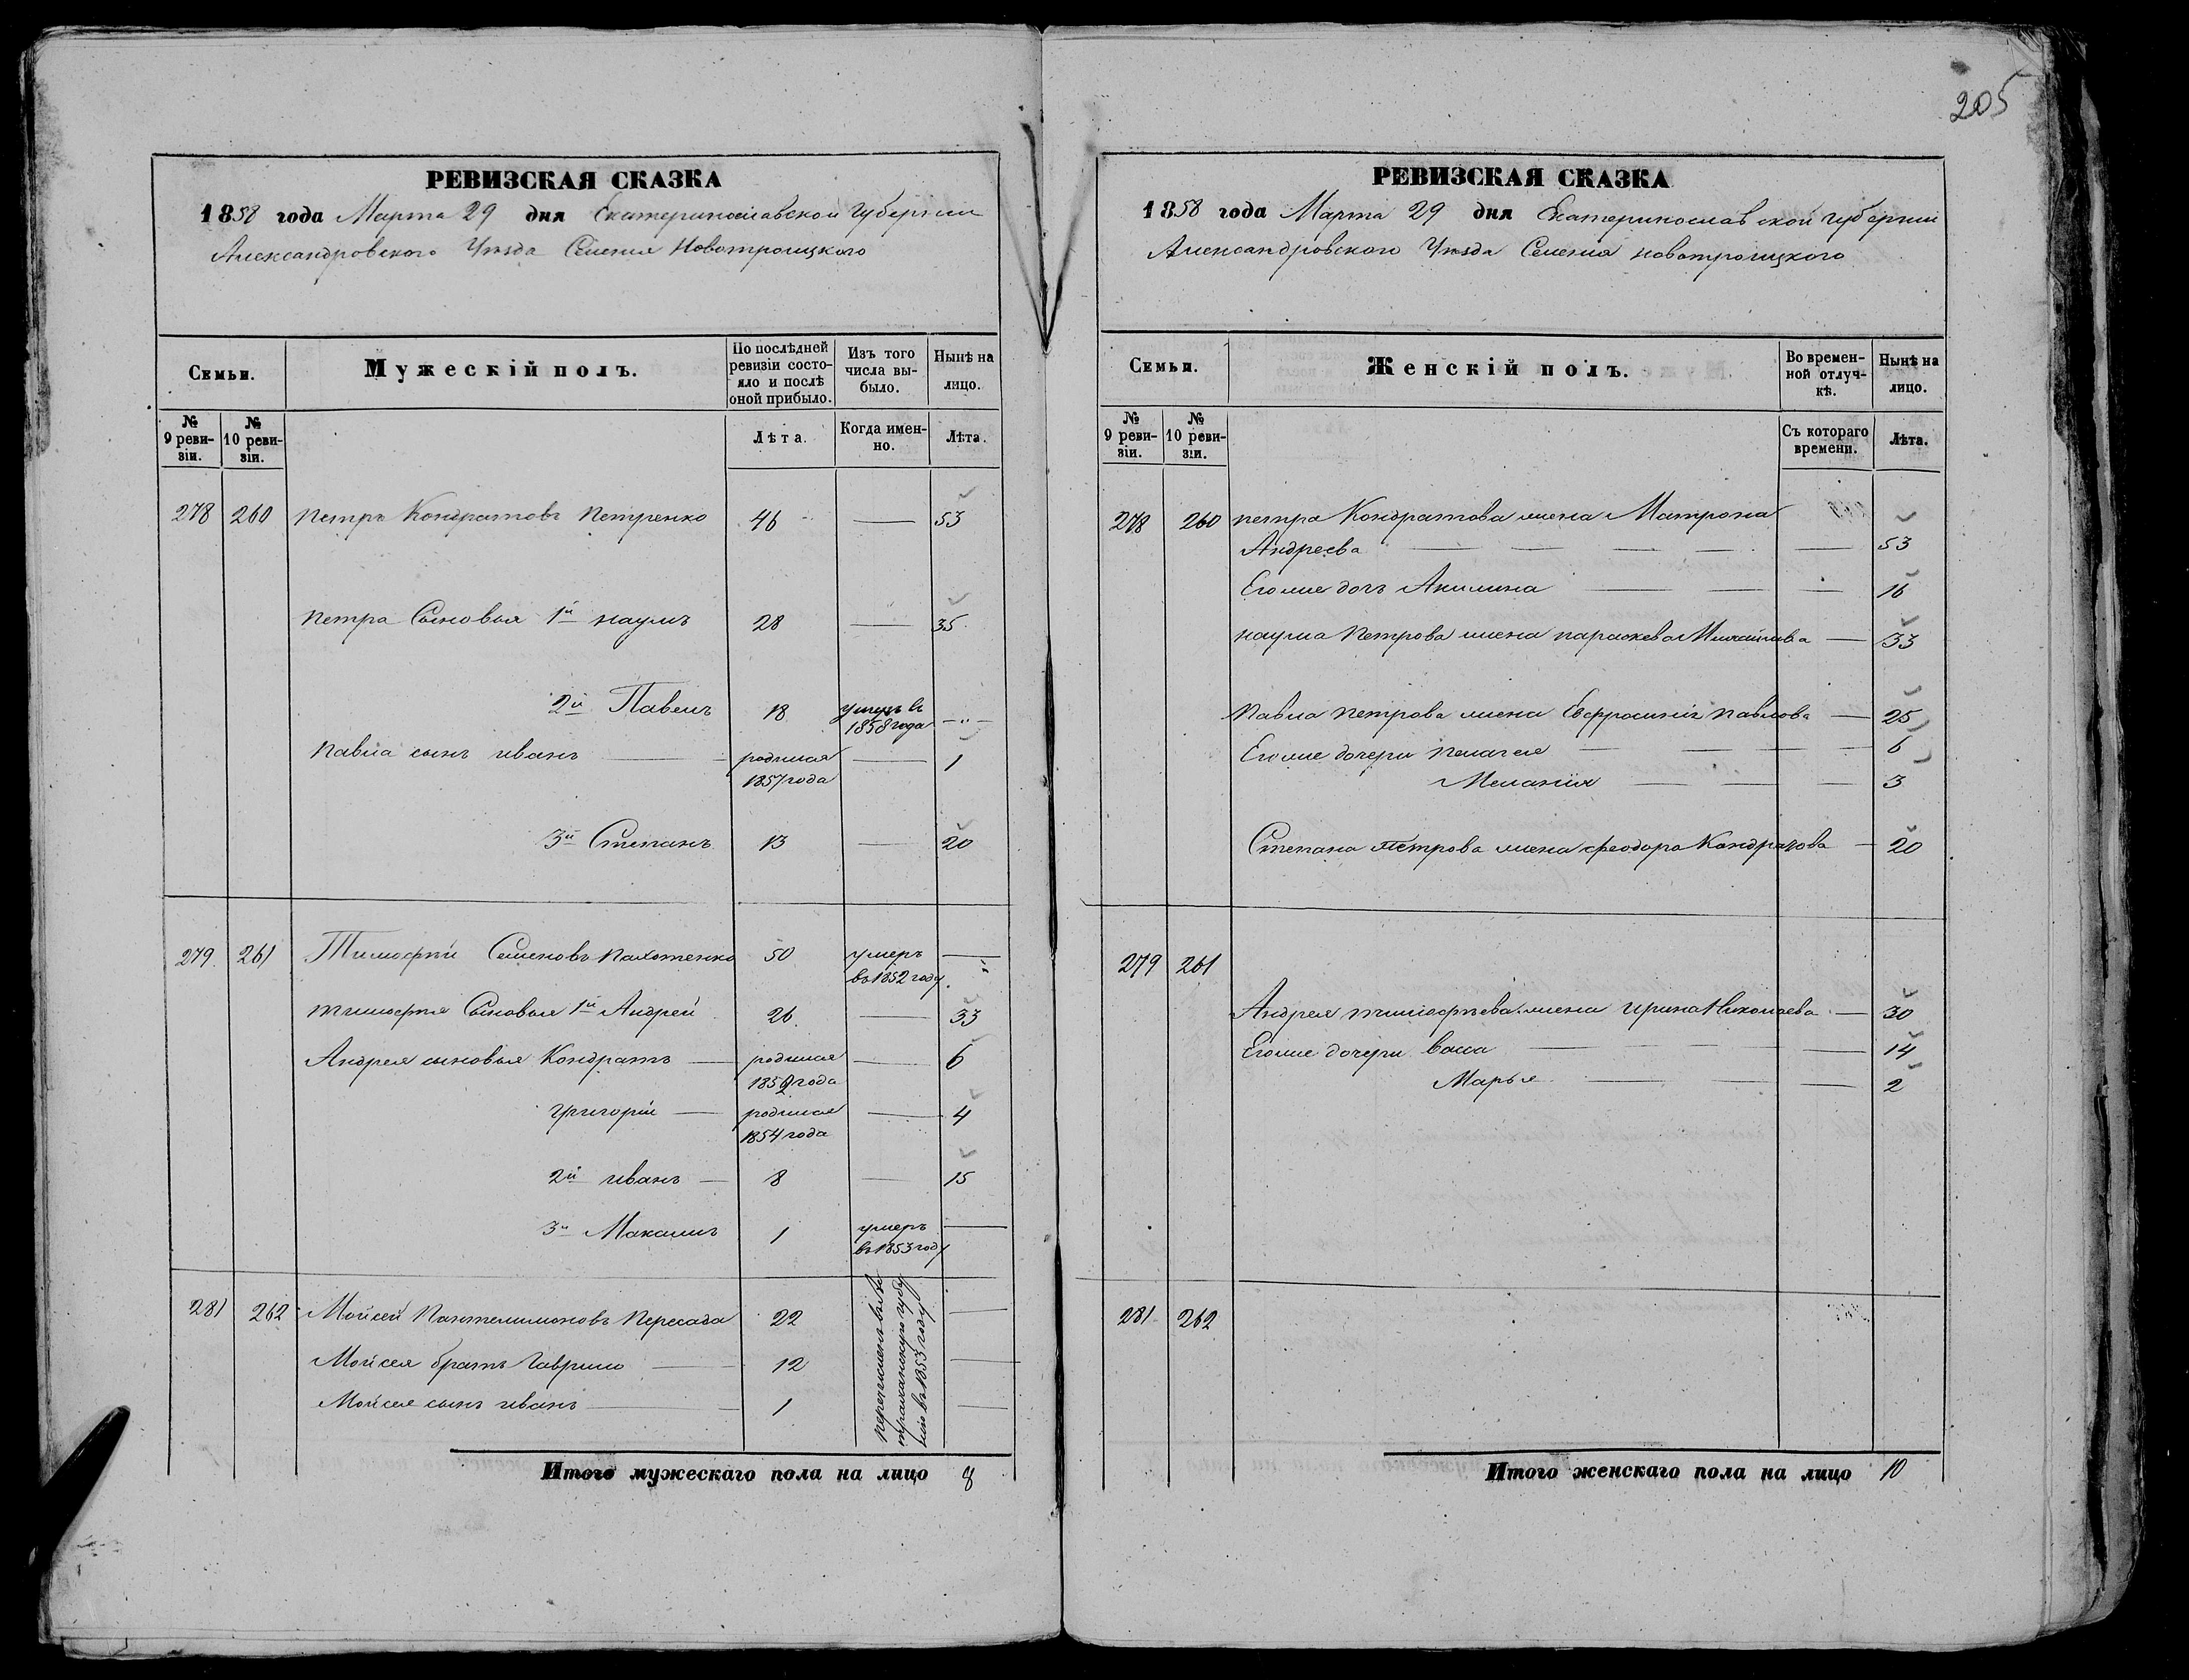 205
РЕВИЗСКАЯ СКАЗКА
1858 года Марта 29 дня Екатеринославской Губернии
Александровского Уѣзда Селения Новотроицкого
Семьи. Мужескій полъ. По послѣдней ревизіи состояло и послѣ оной прибыло. Изъ того числа выбыло. Нынѣ на лицо.
№ 9 ревизіи. № 10 ревизіи. Лѣта. Когда именно. Лѣта.
278 260 Петръ Кондратовъ Петренко 46 — 53
Петра Сыновья 1й наумъ 28 — 35
2й Павелъ 18 умеръ въ 1858 года — " —
Павла сынъ иванъ — родился 1857 года — 1
3й Степанъ 13 — 20
279 261 Тимофѣй Семеновъ Пахотенко 50 умеръ въ 1852 году —
тимофѣя Сыновья 1й Андрей 26 — 33
Андрея сыновья Кондратъ — родился 1852 года — 6
григорій — родился 1854 года — 4
2й иванъ — 8 — 15
3й Максимъ 1 умеръ въ 1853 году —
281 262 Мойсей Пантелимоновъ Пересада 22 —
Мойсея братъ Гаврило — 12 —
Мойсея сынъ иванъ — 1 —
перечисленъ въ Астраханскую губернію въ 1853 году
Итого мужескаго пола на лицо 8
РЕВИЗСКАЯ СКАЗКА
1858 года Марта 29 дня Екатеринославской губернии
Александровского Уѣзда Селения новотроицкого
Семьи. Женскій полъ. Во временной отлучкѣ. Нынѣ на лицо.
№ 9 ревизіи. № 10 ревизіи. Съ котораго времени. Лѣта.
278 260 петра Кондратова жена Матрона
Андреева — 53
Егоже дочь Акилина — 16
наума Петрова жена параскева Михайлова — 33
Павла Петрова жена Евфросинія Павлова — 25
Егоже дочери пелагея — 6
Меланія — 3
Степана Петрова жена феодора Кондратова — 20
279 261
Андрея тимофѣева жена ирина Николаева — 30
Егоже дочери васса — 14
Марья — 2
281 262
Итого женскаго пола на лицо 10